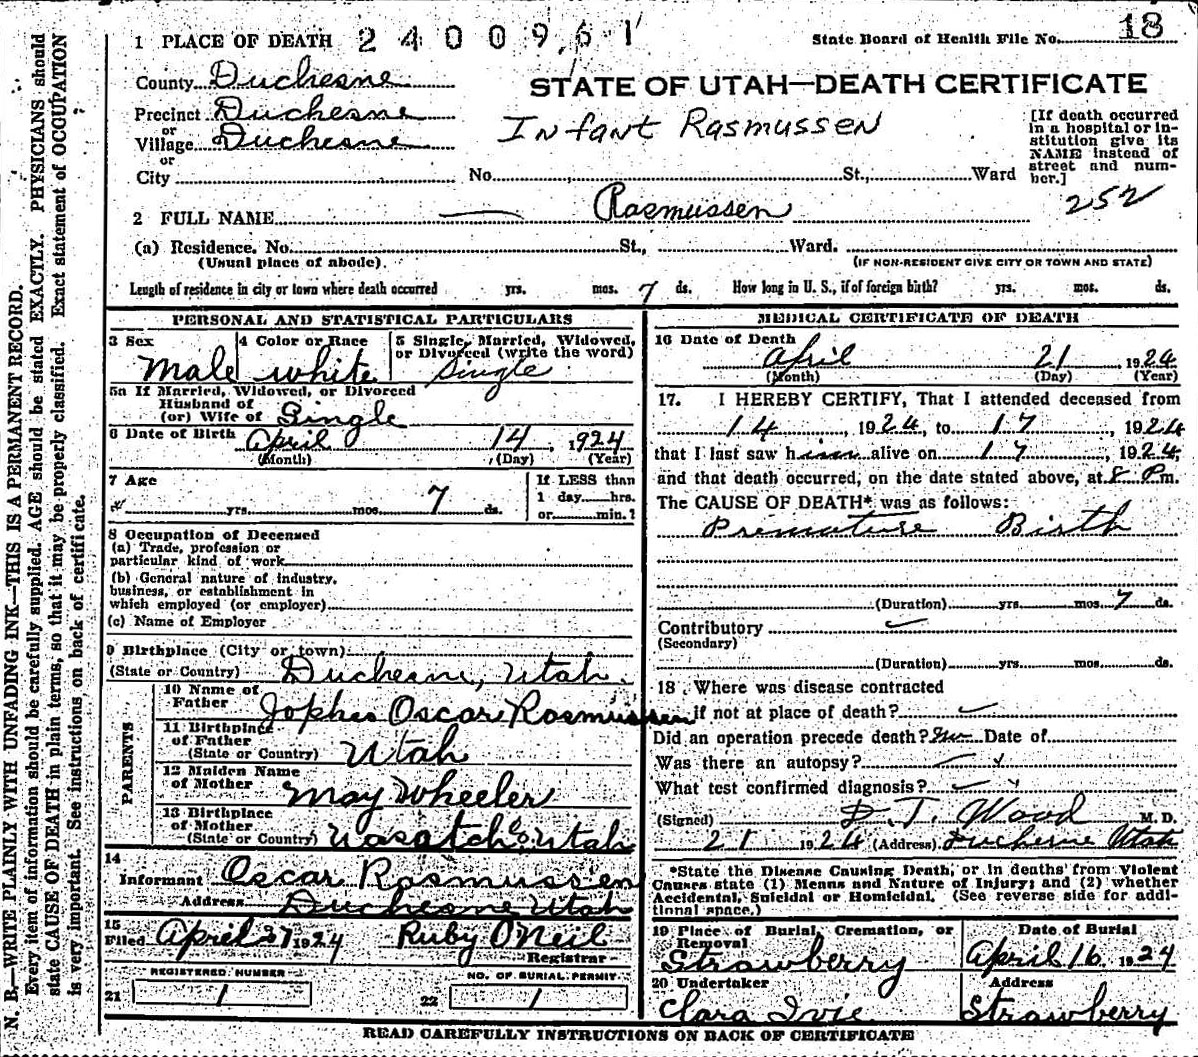 1 PLACE OF DEATH 2400961 State Board of Health File No. 18
County Duchesne
STATE OF UTAH—DEATH CERTIFICATE
Precinct Duchesne
or
Village Duchesne
Infant Rasmussen
or
City No. St., Ward
[If death occurred
in a hospital or in-
stitution give its
NAME instead of
street and num-
ber.]
252
2 FULL NAME Rasmussen
(a) Residence. No. St., Ward.
(Usual place of abode) (IF NON-RESIDENT GIVE CITY OR TOWN AND STATE)
Length of residence in city or town where death occurred yrs. mos. 7 ds. How long in U. S., if of foreign birth? yrs. mos. ds.
PERSONAL AND STATISTICAL PARTICULARS
3 Sex
Male
4 Color or Race
white
5 Single, Married, Widowed,
or Divorced (write the word)
Single
5a If Married, Widowed, or Divorced
Husband of
(or) Wife of Single
6 Date of Birth April 14, 1924
(Month) (Day) (Year)
7 Age
yrs. mos. 7 ds.
If LESS than
1 day hrs.
or min.?
8 Occupation of Deceased
(a) Trade, profession or
particular kind of work
(b) General nature of industry,
business, or establishment in
which employed (or employer)
(c) Name of Employer
9 Birthplace (City or town)
(State or Country) Duchesne, Utah.
PARENTS
10 Name of
Father Oscar Rasmussen
11 Birthplace
of Father
(State or Country) Utah
12 Maiden Name
of Mother May Wheeler
13 Birthplace
of Mother
(State or Country) Wasatch Co Utah
14
Informant Oscar Rasmussen
Address Duchesne Utah
15
Filed April 27 1924 Ruby O'Neil
Registrar
REGISTERED NUMBER
21 1
NO. OF BURIAL PERMIT
22 1
MEDICAL CERTIFICATE OF DEATH
16 Date of Death
April 21 1924
(Month) (Day) (Year)
17. I HEREBY CERTIFY, That I attended deceased from
14, 1924, to 17, 1924
that I last saw him alive on 17, 1924,
and that death occurred, on the date stated above, at 8 P.m.
The CAUSE OF DEATH* was as follows:
Premature Birth
(Duration) yrs. mos. 7 ds.
Contributory
(Secondary)
(Duration) yrs. mos. ds.
18. Where was disease contracted
if not at place of death?
Did an operation precede death? Date of
Was there an autopsy?
What test confirmed diagnosis?
(Signed) D. T. Wood M. D.
21 1924 (Address) Duchesne Utah
*State the Disease Causing Death, or in deaths from Violent
Causes state (1) Means and Nature of Injury; and (2) whether
Accidental, Suicidal or Homicidal. (See reverse side for addi-
tional space.)
19 Place of Burial, Cremation, or
Removal
Strawberry
Date of Burial
April 16 1924
20 Undertaker
Clara Ivie
Address
Strawberry
READ CAREFULLY INSTRUCTIONS ON BACK OF CERTIFICATE
N. B.—WRITE PLAINLY WITH UNFADING INK—THIS IS A PERMANENT RECORD.
Every item of information should be carefully supplied. AGE should be stated EXACTLY. PHYSICIANS should
state CAUSE OF DEATH in plain terms, so that it may be properly classified. Exact statement of OCCUPATION
is very important. See instructions on back of certificate.